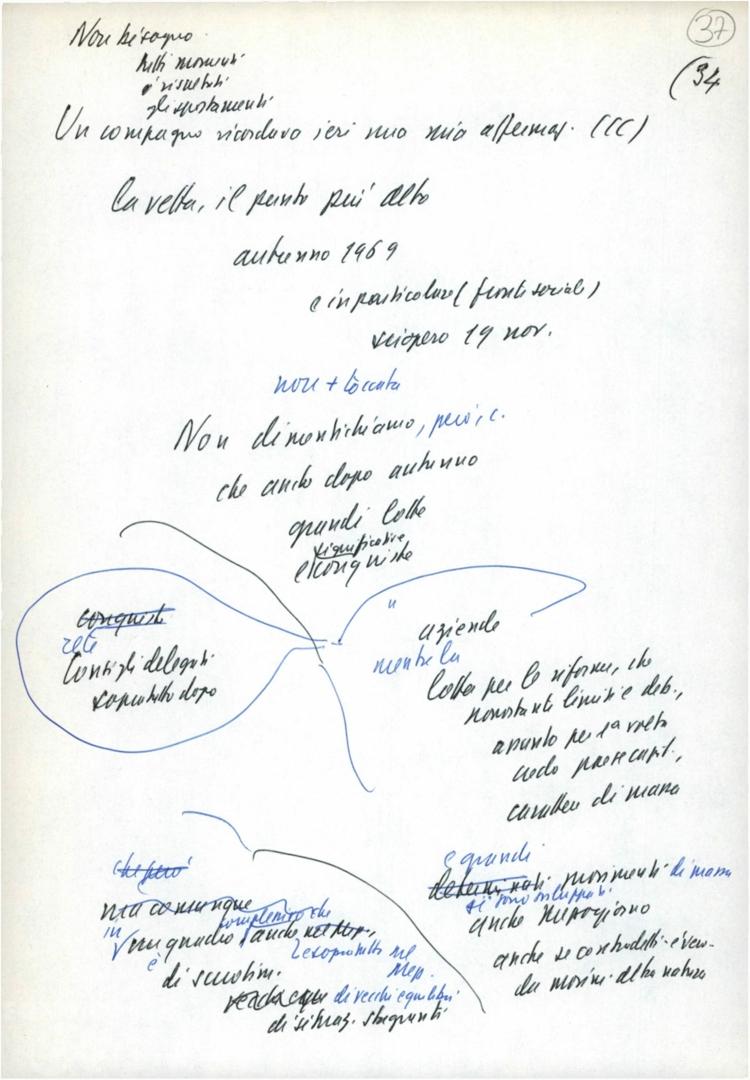 37
(34
Non bisogna
tutti momenti
e risultati
gli spostamenti
Un compagno ricordava ieri una mia affermaz. (CC)
la vetta, il punto più alto
autunno 1969
e in particolare (fronte sociale)
sciopero 19 nov.
non + toccata
Non dimentichiamo, però, c.
che anche dopo autunno
grandi lotte
significative
e conquiste
conquiste
rete
Consigli delegati
soprattutto dopo
"
aziende
mentre la
lotta per le riforme, che
nonostante limiti e deb.,
assunto per 1a volta
credo paese capit.,
carattere di massa
che però
ma comunque
in un quadro complessivo che
anche nel Mez.,
è e soprattutto nel
Mez.
di smotim.
di vecchi equilibri
di situaz. stagnanti
e grandi
determinati movimenti di massa
si sono sviluppati
anche Mezzogiorno
anche se contraddetti e
da movim. altra natura